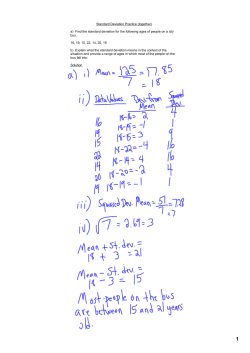 Standard Deviation Practice (together)
a) Find the standard deviation for the following ages of people on a city bus:
16, 19, 15, 22, 14, 20, 19
b) Explain what the standard deviation means in the context of the situation and provide a range of ages in which most of the people on the bus fall into.
Solution
a) i) Mean = 125 = 17.85
7 = 18
ii) Data Values Dev. from Mean Squared Dev.
16 18-16 = 2 4
19 18-19 = -1 1
15 18-15 = 3 9
22 18-22 = -4 16
14 18-14 = 4 16
20 18-20 = -2 4
19 18-19 = -1 1
iii) Squared Dev. Mean = 51
7
= 7.28
= 7
iv) √7 = 2.69 = 3
Mean + St. dev. =
18 + 3 = 21
Mean - St. dev. =
18 - 3 = 15
Most people on the bus
are between 15 and 21 years
old.
1